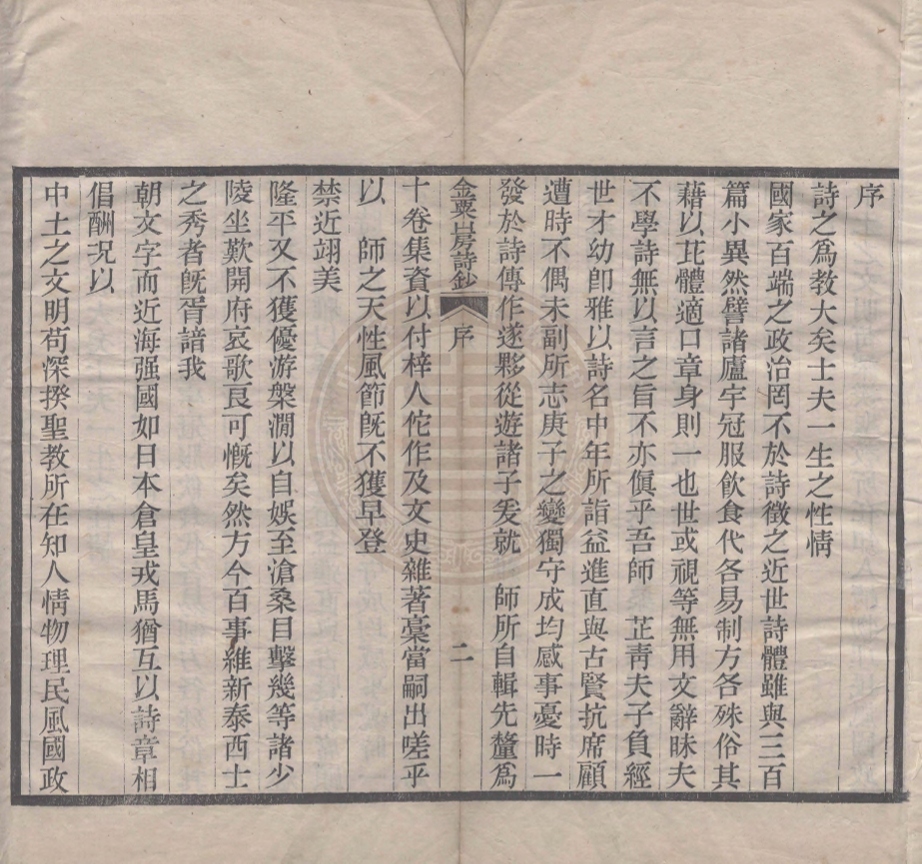 序
詩之爲敎大矣士夫一生之性情
國家百端之政治罔不於詩徵之近世詩體雖與三百
篇小異然譬諸廬宇冠服飮食代各易制方各殊俗其
藉以芘體適口章身則一也世或視等無用文辭昧夫
不學詩無以言之旨不亦傎乎吾師　芷靑夫子負經
世才幼卽雅以詩名中年所詣益進直與古賢抗席顧
遭時不偶未副所志庚子之變獨守成均感事憂時一
發於詩傳作遂夥從遊諸子爰就　師所自輯先釐爲
金粟山房詩鈔　序　二
十卷集資以付梓人佗作及文史雜著稾當嗣出嗟乎
以　師之天性風節旣不獲早登
禁近翊美
隆平又不獲優游槃澗以自娛至滄桑目擊幾等諸少
陵坐歎開府哀歌良可慨矣然方今百事維新泰西士
之秀者旣胥諳我
朝文字而近海强國如日本倉皇戎馬猶互以詩章相
倡酬况以
中土之文明苟深揆聖敎所在知人情物理民風國政